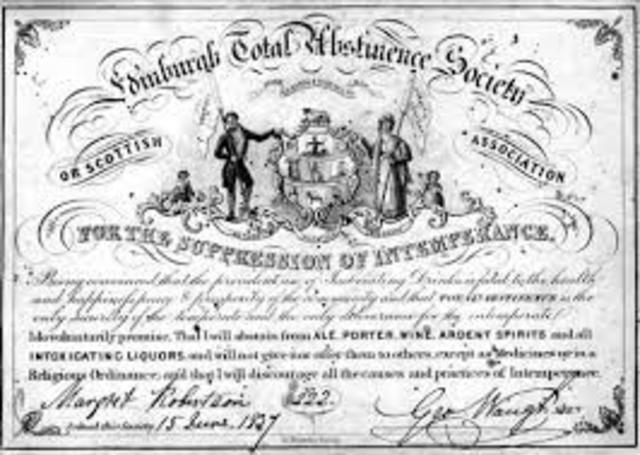 Edinburgh Total Abstinence Society
OR SCOTTISH ASSOCIATION
FOR THE SUPPRESSION OF INTEMPERANCE.
Being convinced that the prevalent use of Intoxicating Drinks is fatal to the health
and happiness, peace & prosperity of the community and that TOTAL ABSTINENCE is the
only security of the temperate and the only deliverance for the intemperate
I do voluntarily promise, That I will abstain from ALE, PORTER, WINE, ARDENT SPIRITS and all
INTOXICATING LIQUORS, and will not give nor offer them to others, except as Medicines or in a
Religious Ordinance; and that I will discourage all the causes and practices of Intemperance.
Margret Robertson
Geo Waugh
joined this Society 15 June 1837